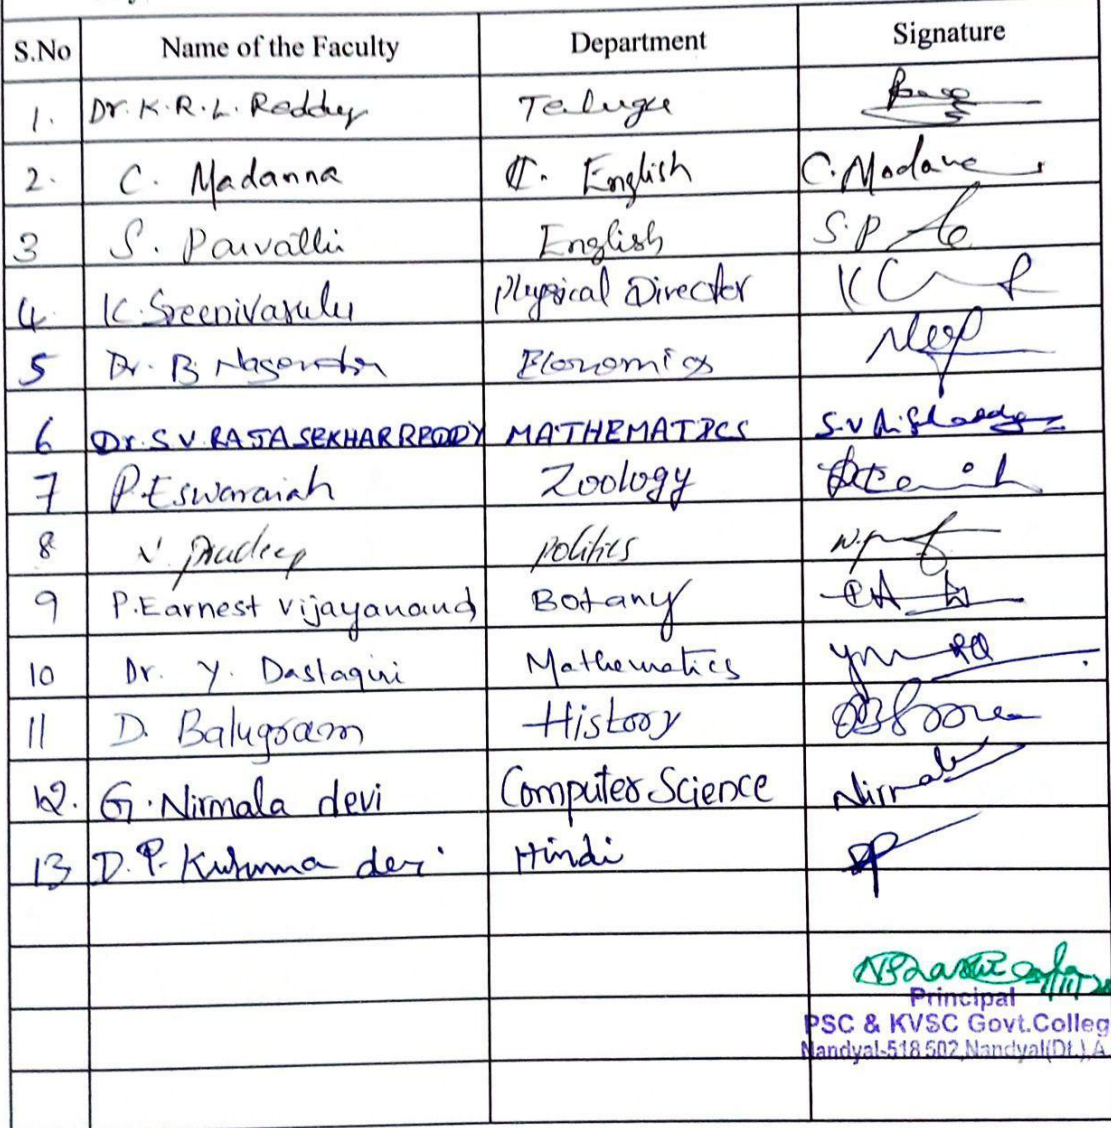 S.No Name of the Faculty Department Signature
1. Dr. K. R. L. Reddy Telugu
2. C. Madanna C. English C. Madana
3 S. Parvathi English S.P
4. K. Sreenivasulu Physical Director
5 Dr. B. Nagendra Economics
6 Dr. S. V. RAJASEKHAR REDDY MATHEMATICS
7 P. Eswaraiah Zoology
8 N. Pradeep Politics
9 P. Earnest Vijayanand Botany
10 Dr. Y. Daslagiri Mathematics
11 D. Balugoram History
12. G. Nirmala devi Computer Science Nirmala
13 D. P. Kusuma devi Hindi
Principal
PSC & KVSC Govt.Colleg
Nandyal-518 502, Nandyal(Dt.), A